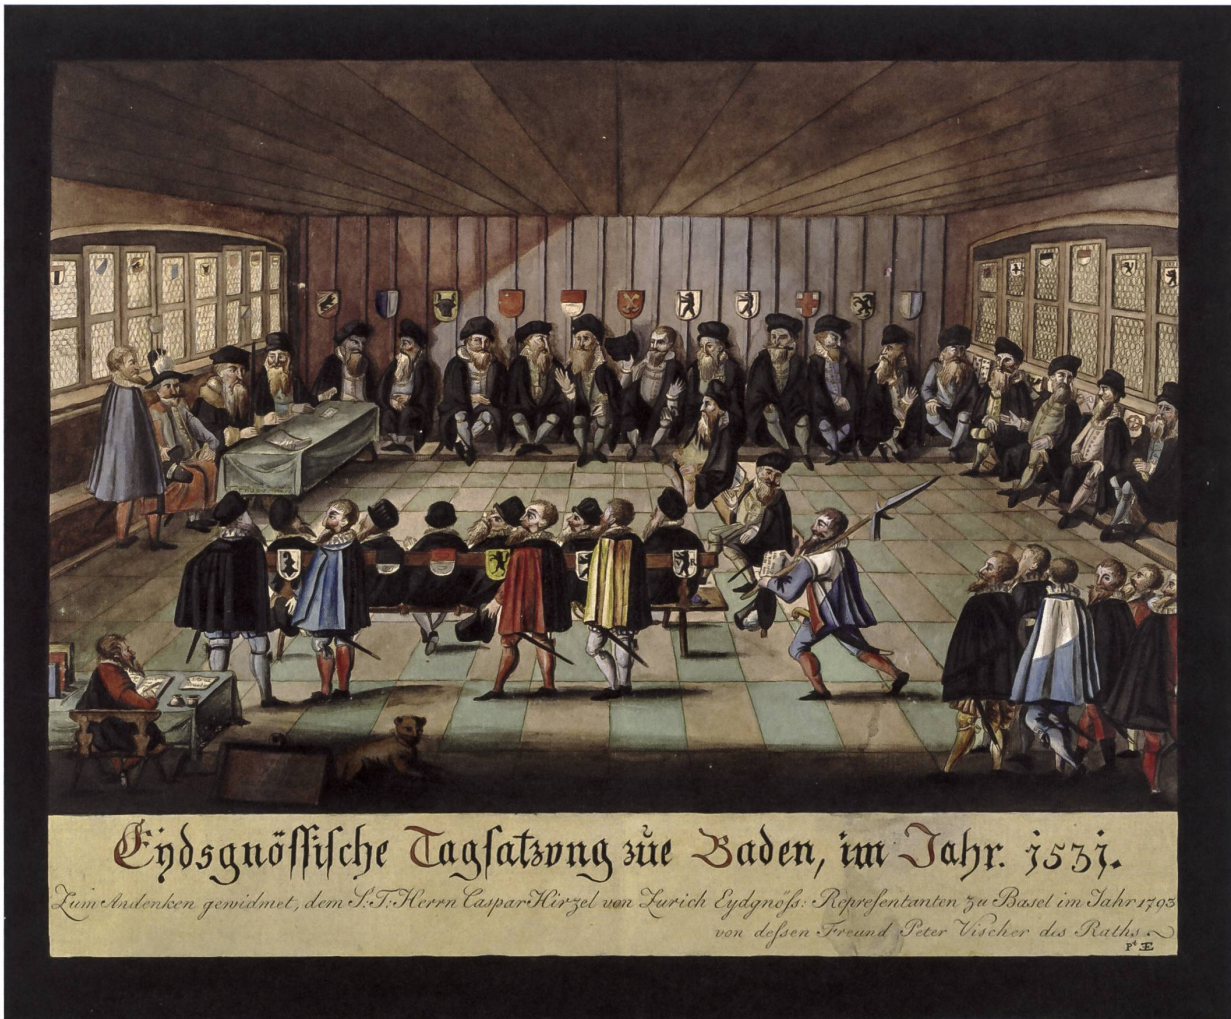 Eydsgnössische Tagsatzung züe Baden, im Jahr. 1531.
Zum Andenken gewidmet, dem S: T: Herrn Caspar Hirzel von Zurich Eydgnöss: Representanten zu Basel im Jahr 1793
von dessen Freund Peter Vischer des Raths